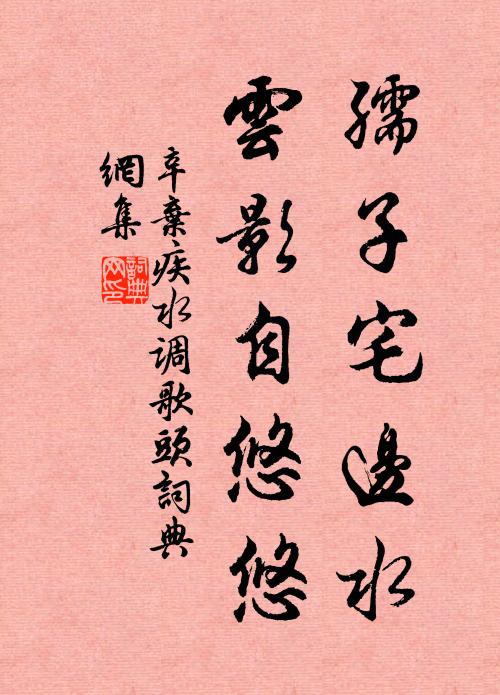 孺子宅邊水
雲影自悠悠
辛棄疾水调歌頭詞典
網集
詞典
网印